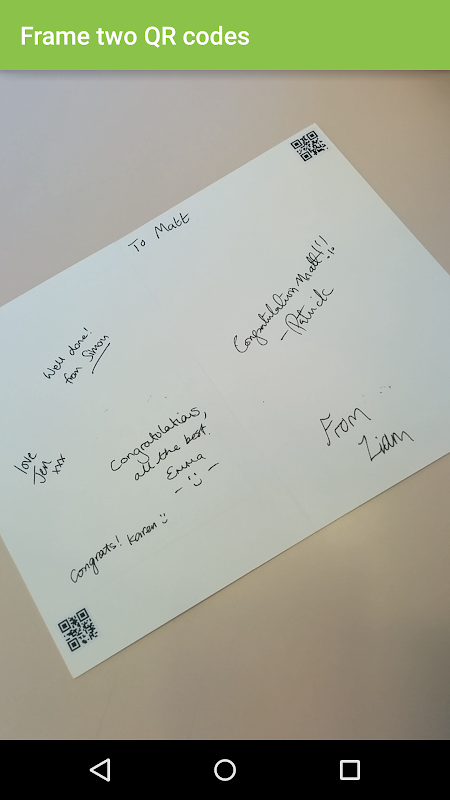 Frame two QR codes
To Matt
Well done!
from Simon
Congratulations Matt!!!
- Patrick
love
Jen
xxx
Congratulations,
all the best!
Emma
From
Liam
Congrats! Karen